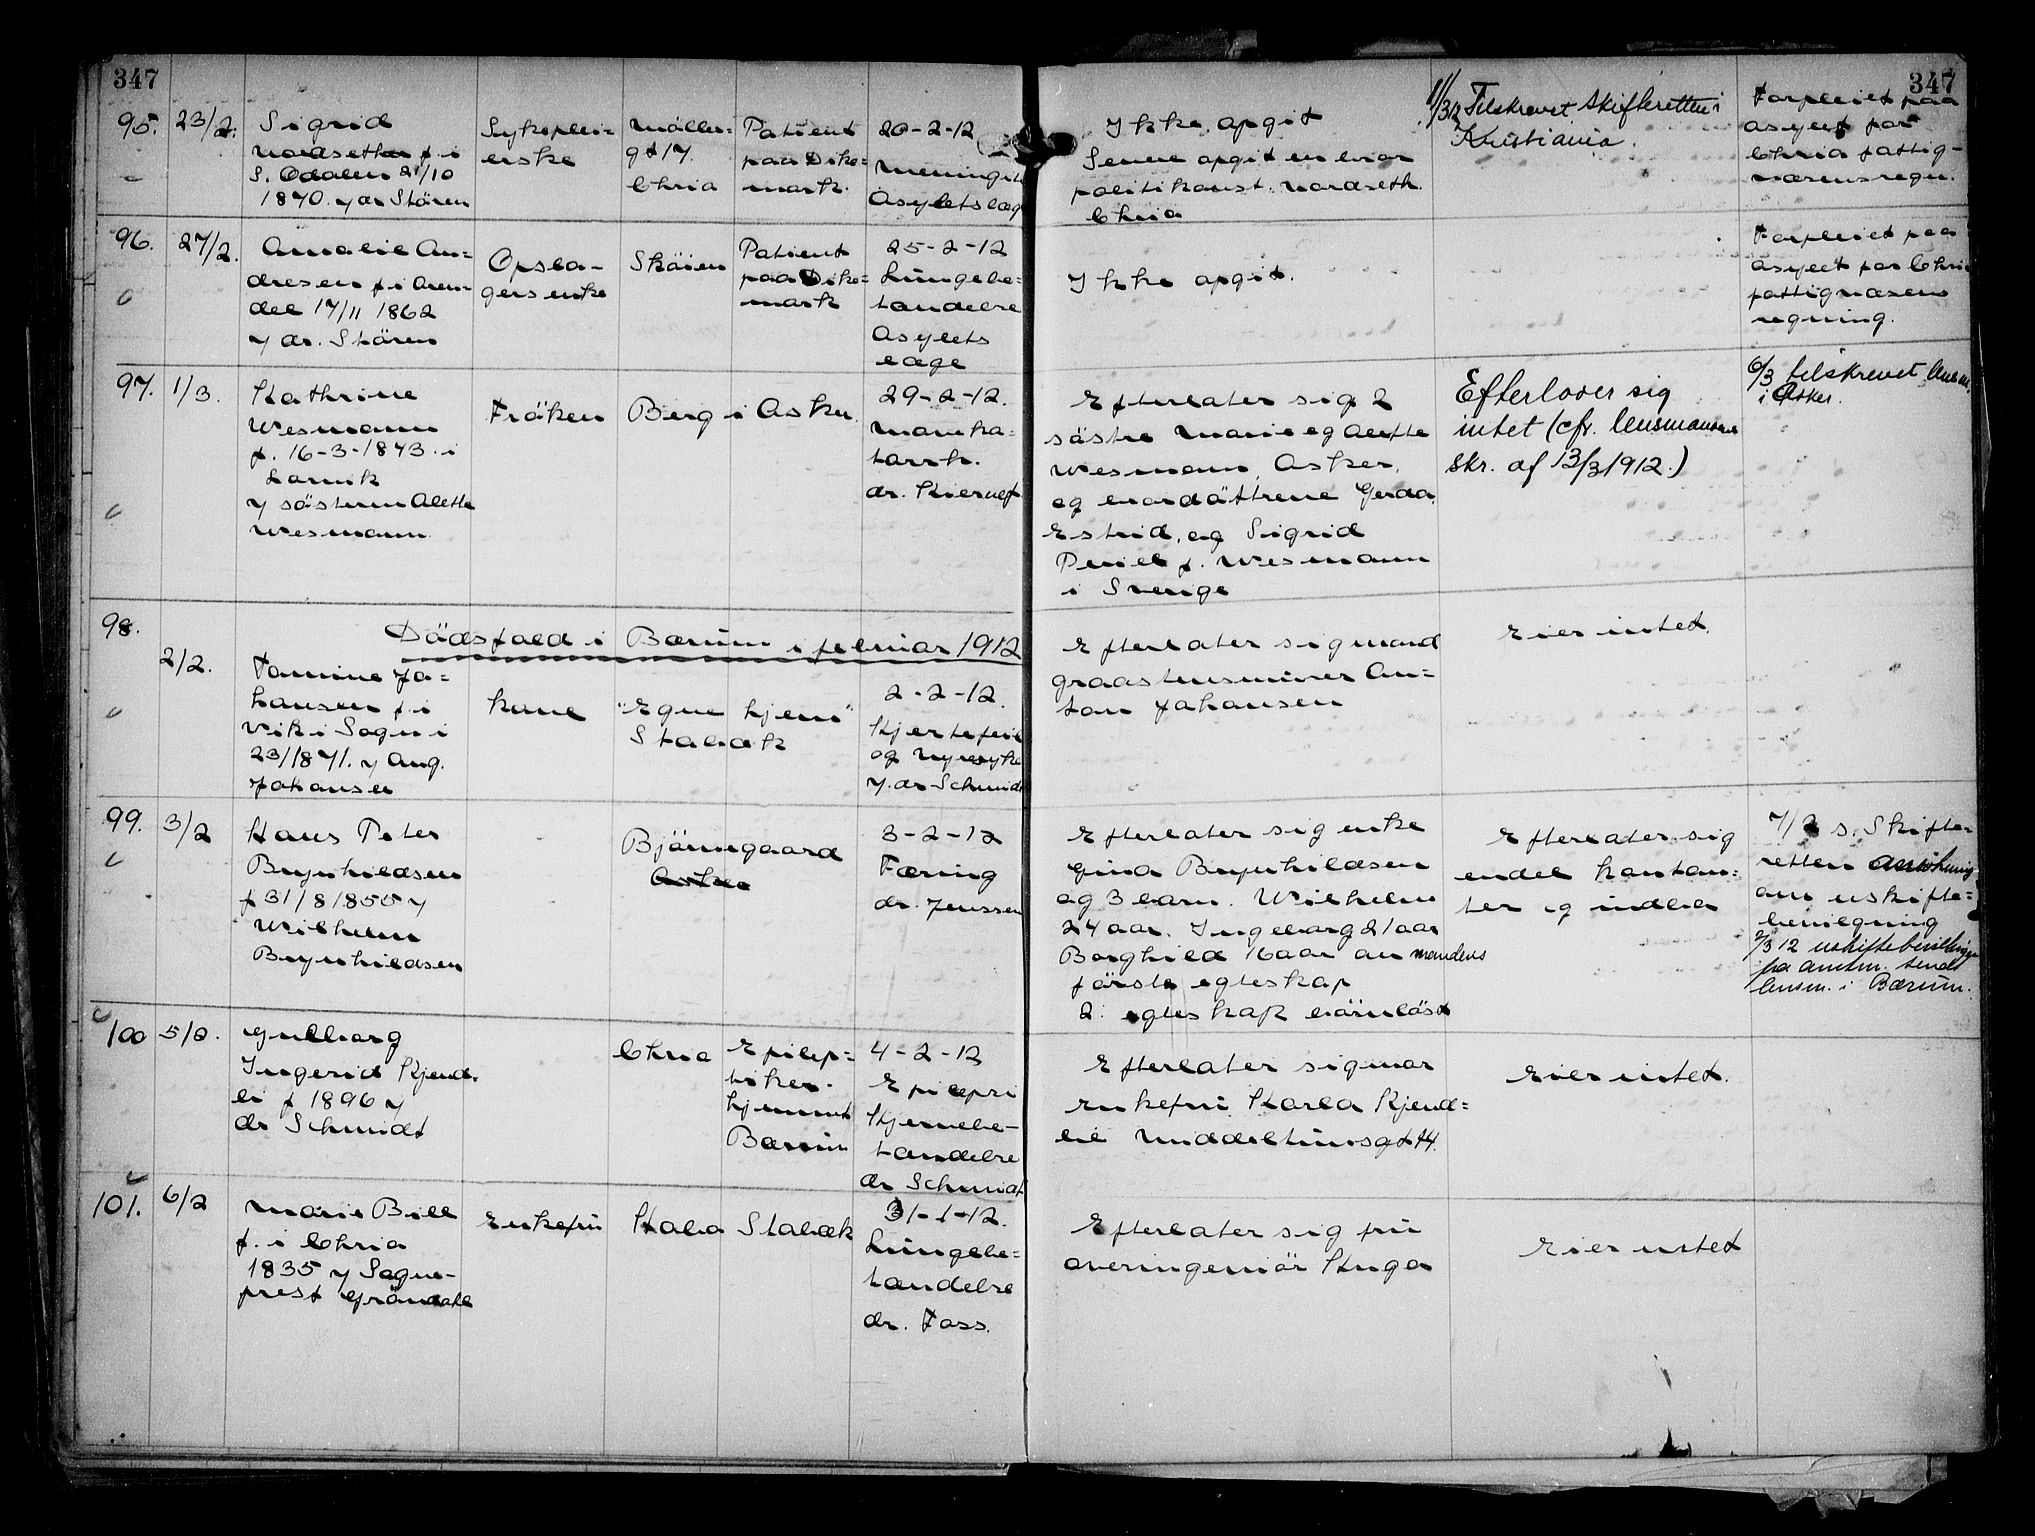 347
347
95.
23/2.
Sigrid
Nordsether f. i
S. Odalen 21/10
1870. v dr Stören
Sykeplei-
erske
Möller-
gt 17.
Chria
Patient
paa Dike-
mark.
20-2-12
Meningit
Asylets læg
Ikke opgit
Senere opgit en bror
politikonst. Nordseth.
Chria
11/3 12 Tilskrevet Skifteretten i
Kristiania.
Forpleiet paa
asylet for
Chria fattig-
væsens regn.
96.
27/2.
Amalie An-
dresen f. i Aren-
dal 17/11 1862
v dr. Stören
Opsla-
gers enke
Sköien
Patient
paa Dike-
mark
25-2-12
Lungebe-
tændelse
Asylets
læge
Ikke opgit.
Forpleiet paa
asylet for Chri
fattigvæsens
regning.
97.
1/3.
Kathrine
Wesmann
f. 16-3-1843. i
Larvik
v söstern Alette
Wesmann
Fröken
Berg i Asker
29-2-12.
Maveka-
tarrh.
dr. Kierulf
Efterlater sig 2
söstre Marie og Alette
Wesmann, Asker,
og brordöttrene Gerda,
Estrid, og Sigrid
f. Wesmann
i Sverige
Efterlover sig
intet (cfr. lensmandens
skr. af 13/3 1912.)
6/3 tilskrevet lensm.
i Asker.
98.
Dödsfald i Bærum i februar 1912
2/2.
Tomine Jo-
hansen f. i
Vik i Sogn i
23/1871. v Aug.
Johansen
kone
"Egne hjem"
Stabæk
2-2-12.
Hjertefeil
og Nyresyke
v. dr Schmidt
Efterlater sig mand
graastensminer An-
ton Johansen
Eier intet.
99.
3/2
Hans Peter
Brynhildsen
f 31/8 1855 v
Wilhelm
Brynhildsen
Bjärnegaard
Asker
3-2-12
Tæring
dr. Jenssen
Efterlater sig enke
Gina Brynhildsen
og 3 barn. Wilhelm
24 aar. Ingeborg 21 aar
Borghild 16 aar av mandens
förste egteskap
2. egteskap barnlöst
Efterlater sig
endel kontan-
ter og indbo
7/2 s. Skifte-
retten ansökning
om uskifte-
bevilgning
2/3 12 uskiftebevillingen
fra amtm. sendt
lensm. i Bærum.
100
5/2.
Gulborg
Ingerid Kjend-
li f 1896 v
dr Schmidt
Chria
Epilep-
tiker-
hjemmet
Bærum
4-2-12
Epilepsi
Hjernebe-
tændelse
dr Schmidt
Efterlater sig mor
enkefru Karla Kjend-
lie Middeltunsgt 14.
Eier intet.
101.
6/2
Marie Bill
f. i Chria
1835 v Sogne-
prest Gröndahl
Enkefru
Stabæk
31-1-12.
Lungebe-
tændelse
dr. Foss.
Efterlater sig fru
overingeniör Skuga
Eier intet